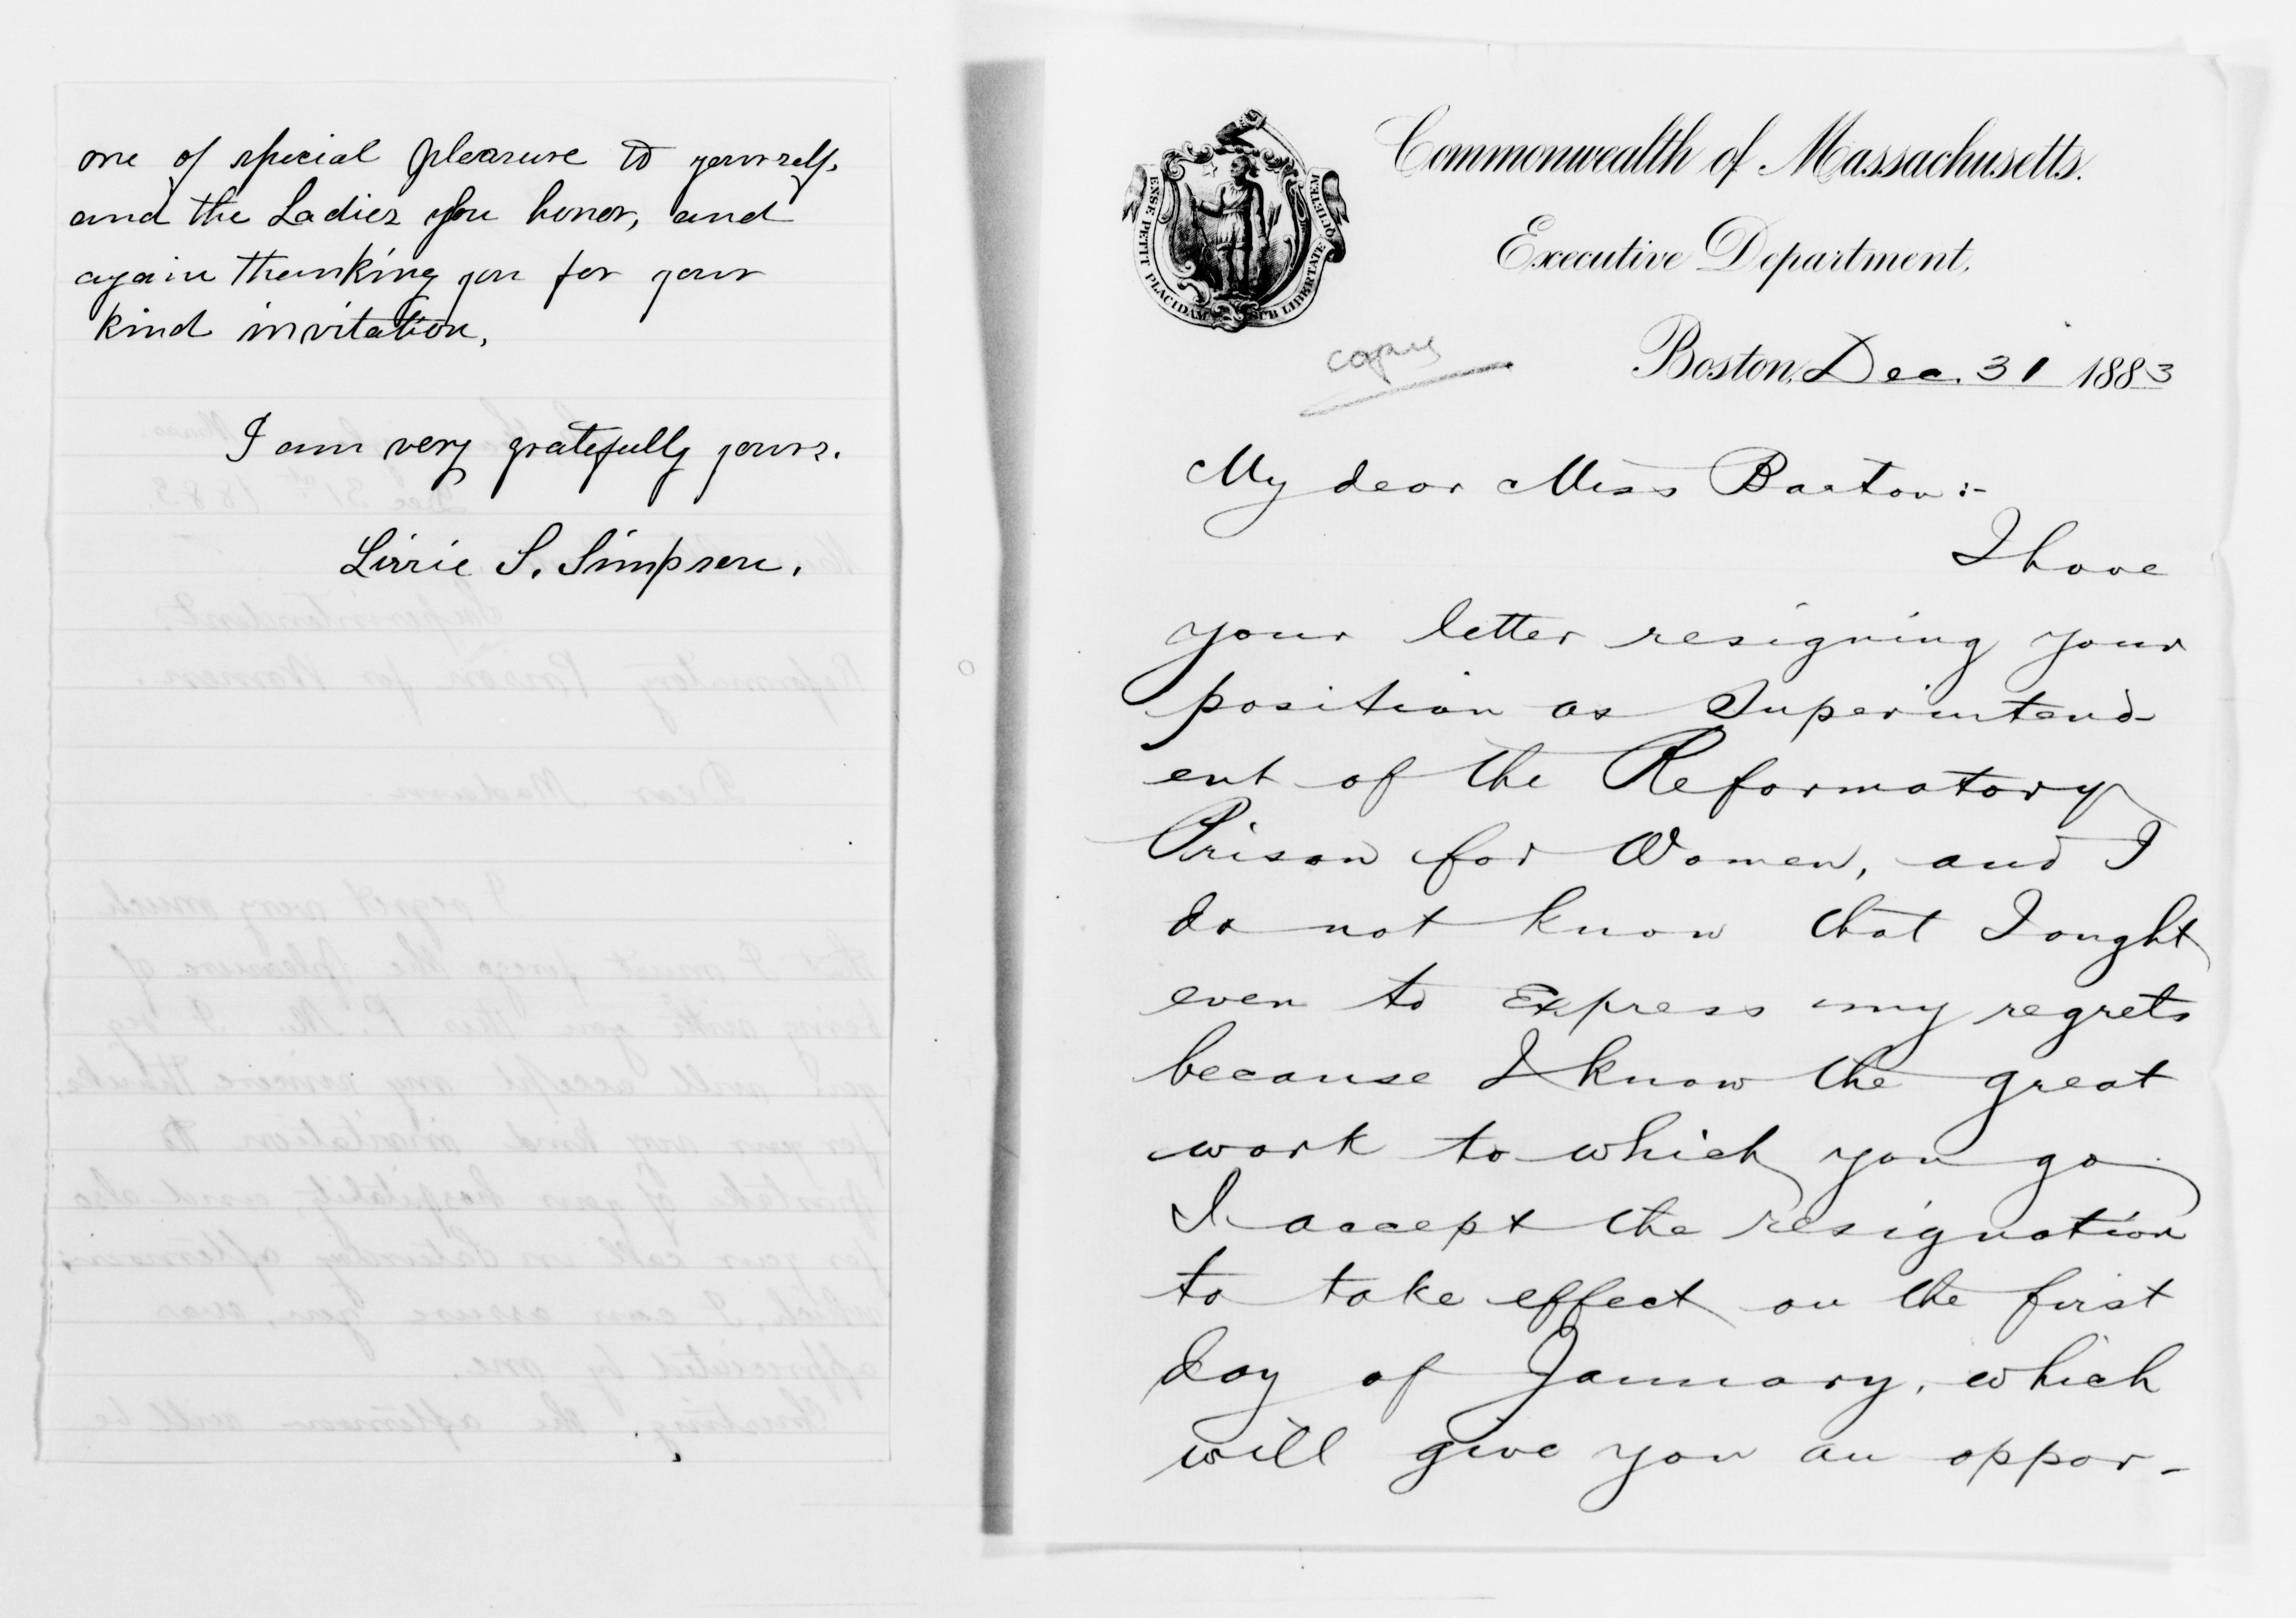 one of special pleasure to yourself,
and the Ladies you honor, and
again thanking you for your
kind invitation,
I am very gratefully yours.
Lizzie S. Simpson.
Commonwealth of Massachusetts.
Executive Department,
ENSE PETIT PLACIDAM SUB LIBERTATE QUIETEM
copy
Boston, Dec. 31 1883
My dear Miss Barton:-
I have
your letter resigning your
position as Superintend-
ent of the Reformatory
Prison for Women, and I
do not know that I ought
even to Express my regrets
because I know the great
work to which you go
I accept the resignation
to take effect on the first
day of January, which
will give you an oppor-